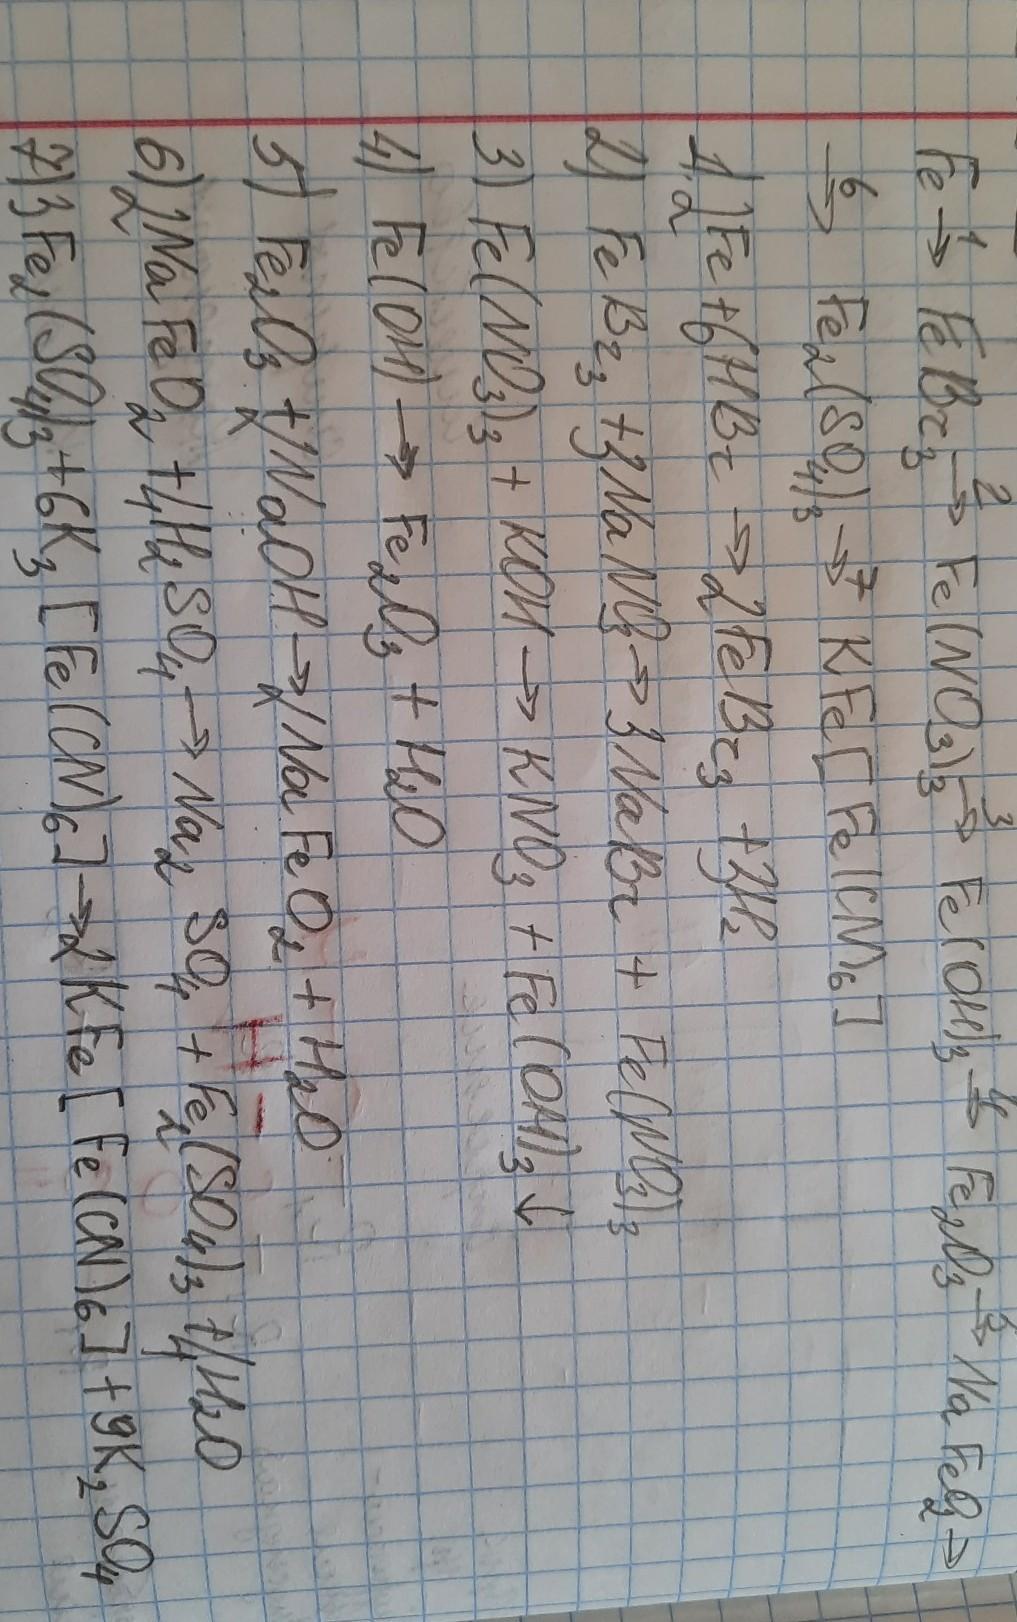 Fe →¹ FeBr₃ →² Fe(NO₃)₃ →³ Fe(OH)₃ →⁴ Fe₂O₃ →⁵ NaFeO₂ →
→⁶ Fe₂(SO₄)₃ →⁷ KFe[Fe(CN)₆]
1) 2Fe + 6HBr → 2FeBr₃ + 3H₂
2) FeBr₃ + 3NaNO₃ → 3NaBr + Fe(NO₃)₃
3) Fe(NO₃)₃ + KOH → KNO₃ + Fe(OH)₃↓
4) Fe(OH) → Fe₂O₃ + H₂O
5) Fe₂O₃ + 2NaOH → 2NaFeO₂ + H₂O
6) 2NaFeO₂ + 4H₂SO₄ → Na₂SO₄ + Fe₂(SO₄)₃ + 4H₂O
7) 3Fe₂(SO₄)₃ + 6K₃[Fe(CN)₆] → 2KFe[Fe(CN)₆] + 9K₂SO₄